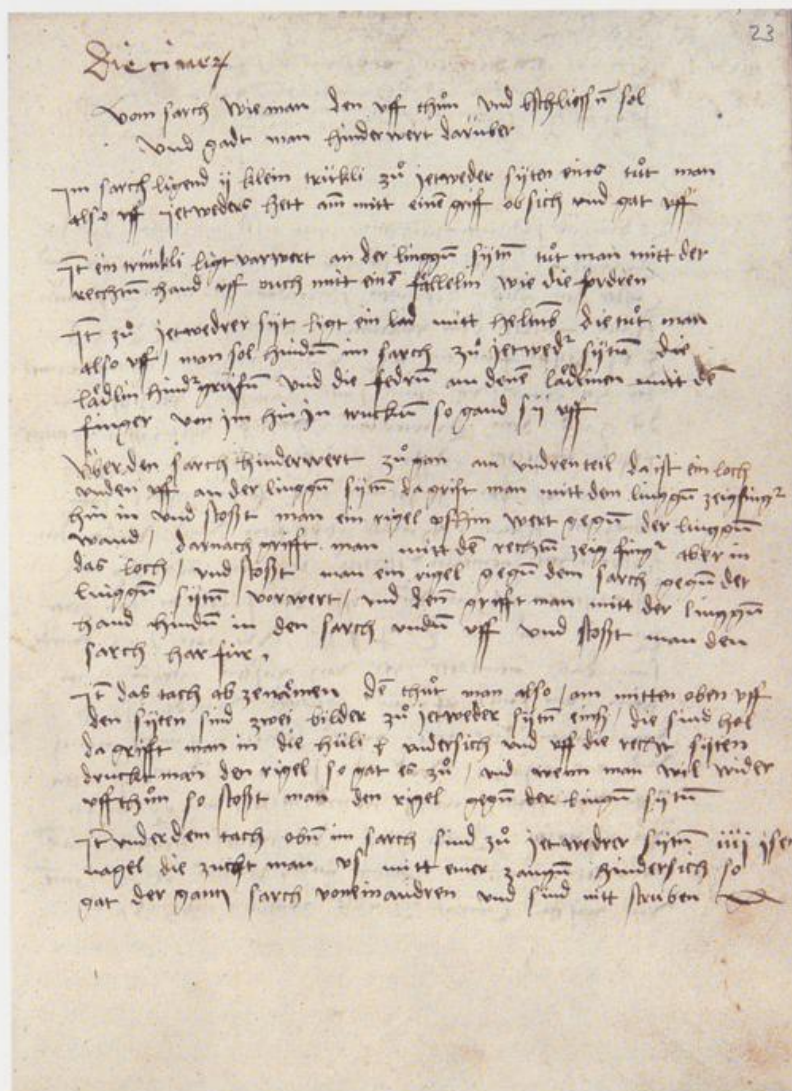 23
Vom sarch wie man den uff thůn und bschliessen sol
Und gadt man hinderwert darüber
Im sarch ligend ij klein trükli zů jetweder syten eins tůt man
also uff jetweders hett am mitt einen griff obsich und gat uff
It ein trükli ligt varwert an der linggen syten tůt man mitt der
rechten hand uff ouch mitt einē fällelin wie die fordren
It zů jetwedrer syt ligt ein lad mitt die tůt man
also uff / man sol hinden im sarch zů jetwedr syten die
lädlin hindr grifen und die fedren an denē lädlinen mitt dē
finger von im hin in trucken so gand sy uff
Über den sarch hinderwert zů gan am undren teil da ist ein loch
unden uff an der linggen syten da grift man mitt dem linggen zeigfingr
hin in und stoßt man ein rigel wert gegen der linggen
wand / darnach grifft man mitt dē rechten zeig fingr aber in
das loch / und stoßt man ein rigel gegen dem sarch gegen der
linggen syten vorwert / und den grifft man mitt der linggen
hand hinden in den sarch unden uff und stoßt man den
sarch har für .
It das tach ab zenämen dē thůt man also / am mitten oben uff
den syten sind zwei bilder zů jetweder syten einß / die sind hol
da grifft man in die hüli undersich und uff die recht syten
druckt man den rigel so gat es zů / und wenn man wil wider
uff thůn so stoßt man den rigel gegen der lingen syten
It under dem tach oben im sarch sind zů jetwedrer syten iiij isen
nagel die zucht man us mitt einer zangen hindersich so
gat der gantz sarch voneinandren und sind nitt struben